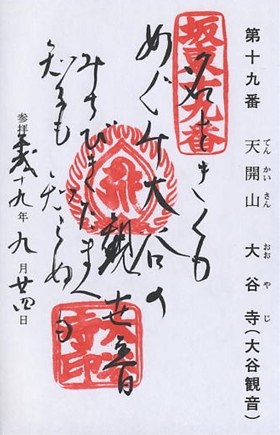 第十九番 天開山 大谷寺(大谷観音)
てんかいさん おおやじ
坂東十九番
名をきくも
めぐみ大谷の
観世音
みちびきたまへ
知るも
知らぬも
参拝 平成十九年 九月廿四日